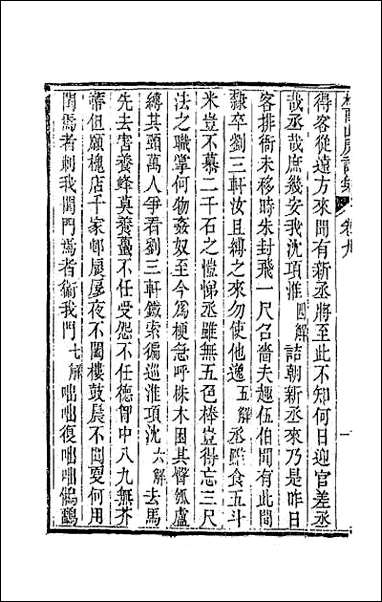 得客從遠方來問有新丞將至此不知何日迎官差丞
哉丞哉庶幾安我沈項淮四解詰朝新丞來乃是昨日
客排衙未移時朱封飛一尺召嗇夫趣伍伯間有此間
隸卒劉三軒汝且縛之來勿使他逸五解丞雖食五斗
米豈不慕二千石之愷悌丞雖無五色棒豈得忘三尺
法之職掌何物姦奴至今為梗急呼株木困其臀瓠盧
縛其頭萬人爭看劉三軒鐵索徧巡淮項沈六解去馬
先去害養蜂莫養蠆不任受怨不任德胷中八九無芥
蔕但願槐店千家邨屐屐夜不闔樓鼓晨不閧更何用
閏為者刺我閨門為者術我門七解咄咄復咄咄鵂鶹